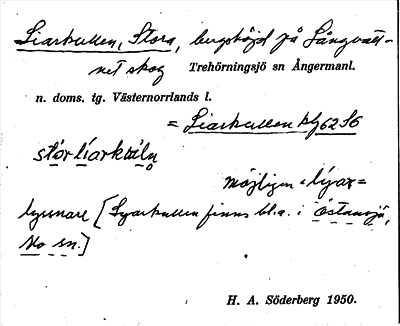 Liarkullen, Stora, bergshöjd på Långvatt-
net skog Trehörningsjö sn Ångermanl.
n. doms. tg. Västernorrlands l.
= Liarkullen blg 62 S6
stórlíarkùln
möjligen = lyar =
lyssnare [Lyarkullen finns bl.a. i Östansjö,
No sn.]
H. A. Söderberg 1950.